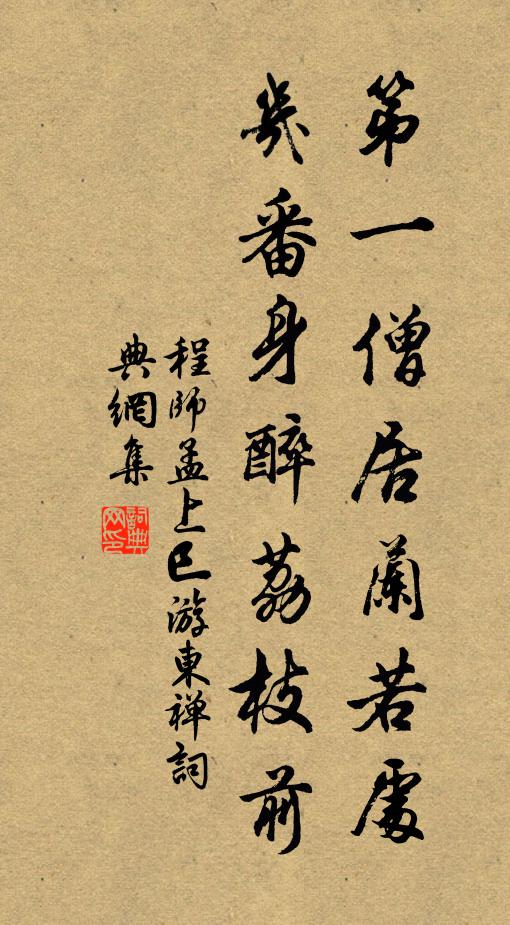 第一僧居蘭若處
幾番身醉荔枝前
程師孟上巳游東禅詞
典網集
詞典網印